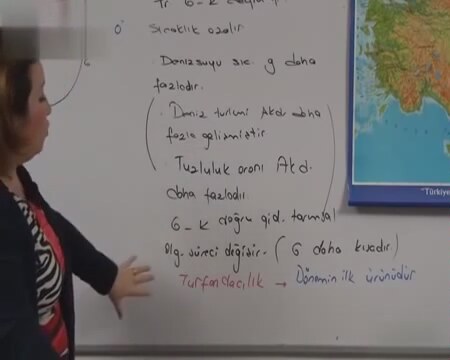 G-K
0° Sıcaklık azalır
. Denizsuyu sıc. g daha
fazladır.
. Deniz turizmi Akd. daha
fazla gelişmiştir
. Tuzluluk oranı Akd.
daha fazladır.
G-K doğru gid. tarımsal
Olg. süreci değişir. (G daha kısadır.)
Turfandacılık → Dönemin ilk ürünüdür
"Türkiye